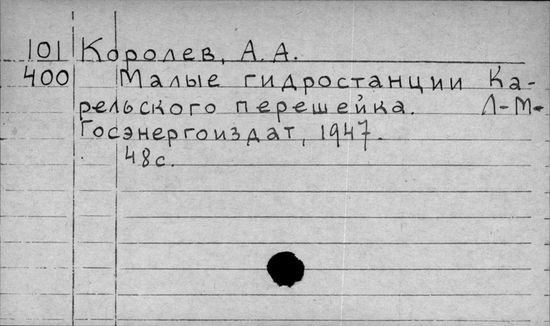 101 Королев, А. А.
400 Малые гидростанции Ка-
рельского перешейка. Л-М-
Госэнергоиздат, 1947.
48с.